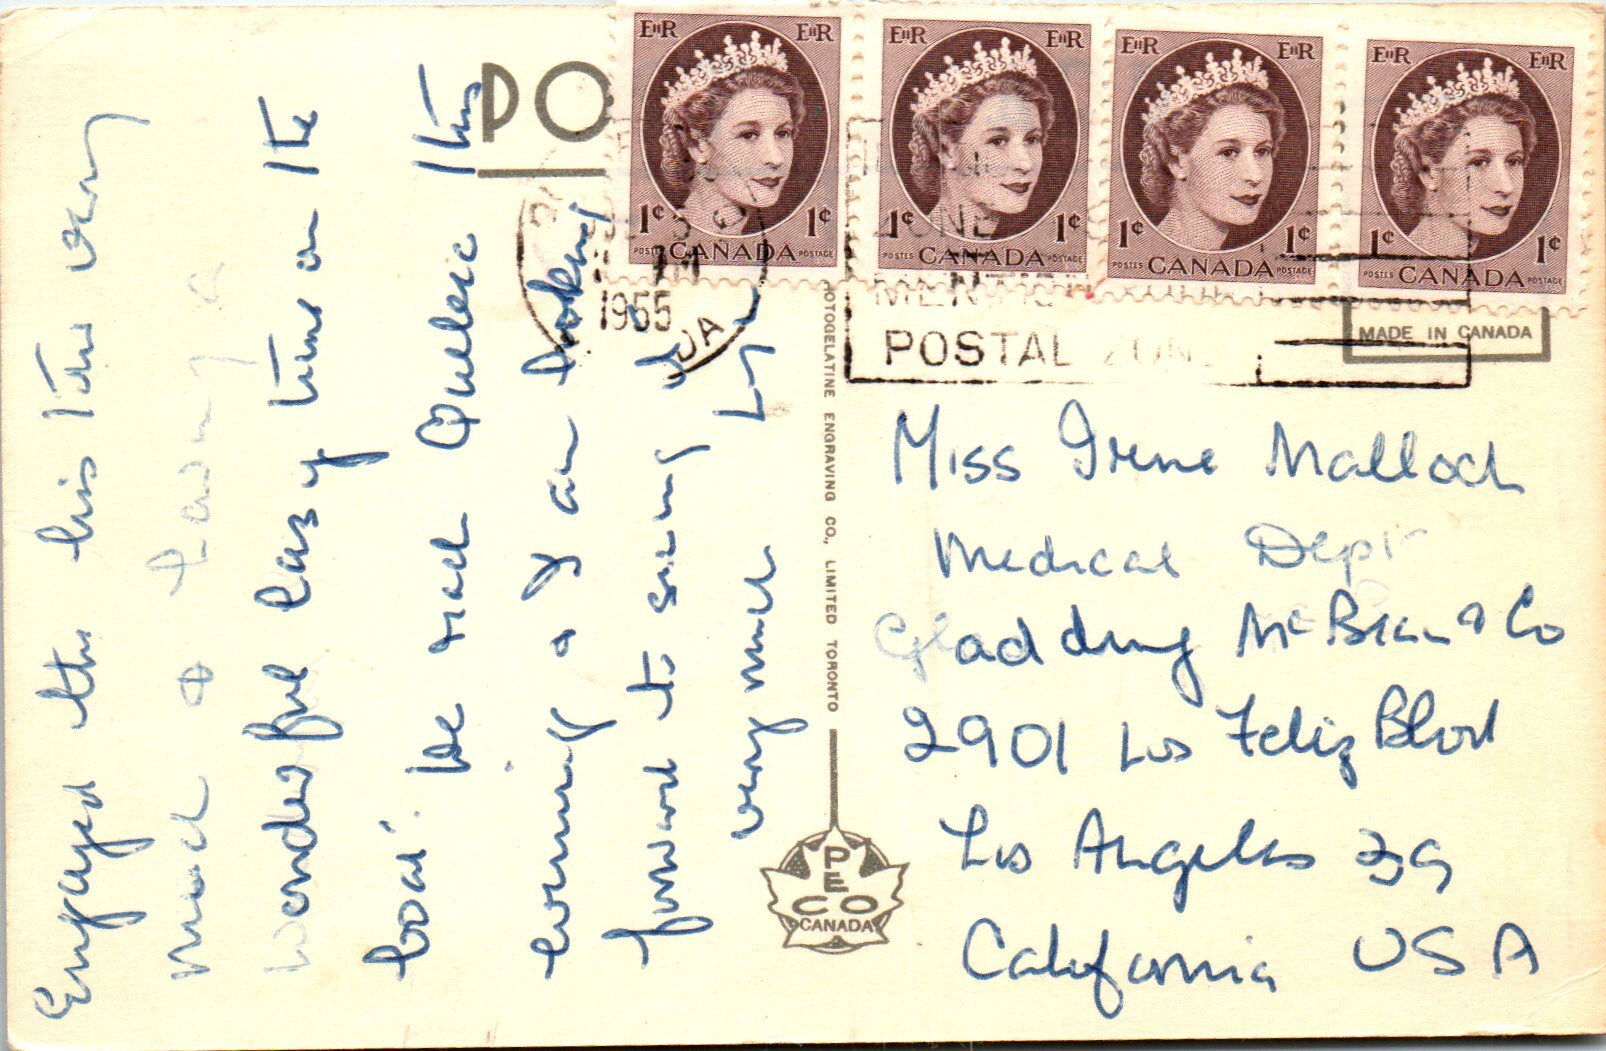 Enjoyed the bis tour very
much & having a
wonderful lazy time on the
boat. We reach Quebec this
evening & I am looking
forward to seeing it
very much
PO
EIIR EIIR
1¢ 1¢
POSTES CANADA POSTAGE
EIIR EIIR
1¢ 1¢
POSTES CANADA POSTAGE
EIIR EIIR
1¢ 1¢
POSTES CANADA POSTAGE
EIIR EIIR
1¢ 1¢
POSTES CANADA POSTAGE
1955
DA
ZONE
POSTAL ZON
MADE IN CANADA
OTOGELATINE ENGRAVING CO., LIMITED TORONTO
PECO
CANADA
Miss Irene Malloch
Medical Dept
Gladding McBean & Co
2901 Los Feliz Blvd
Los Angeles 39
California USA